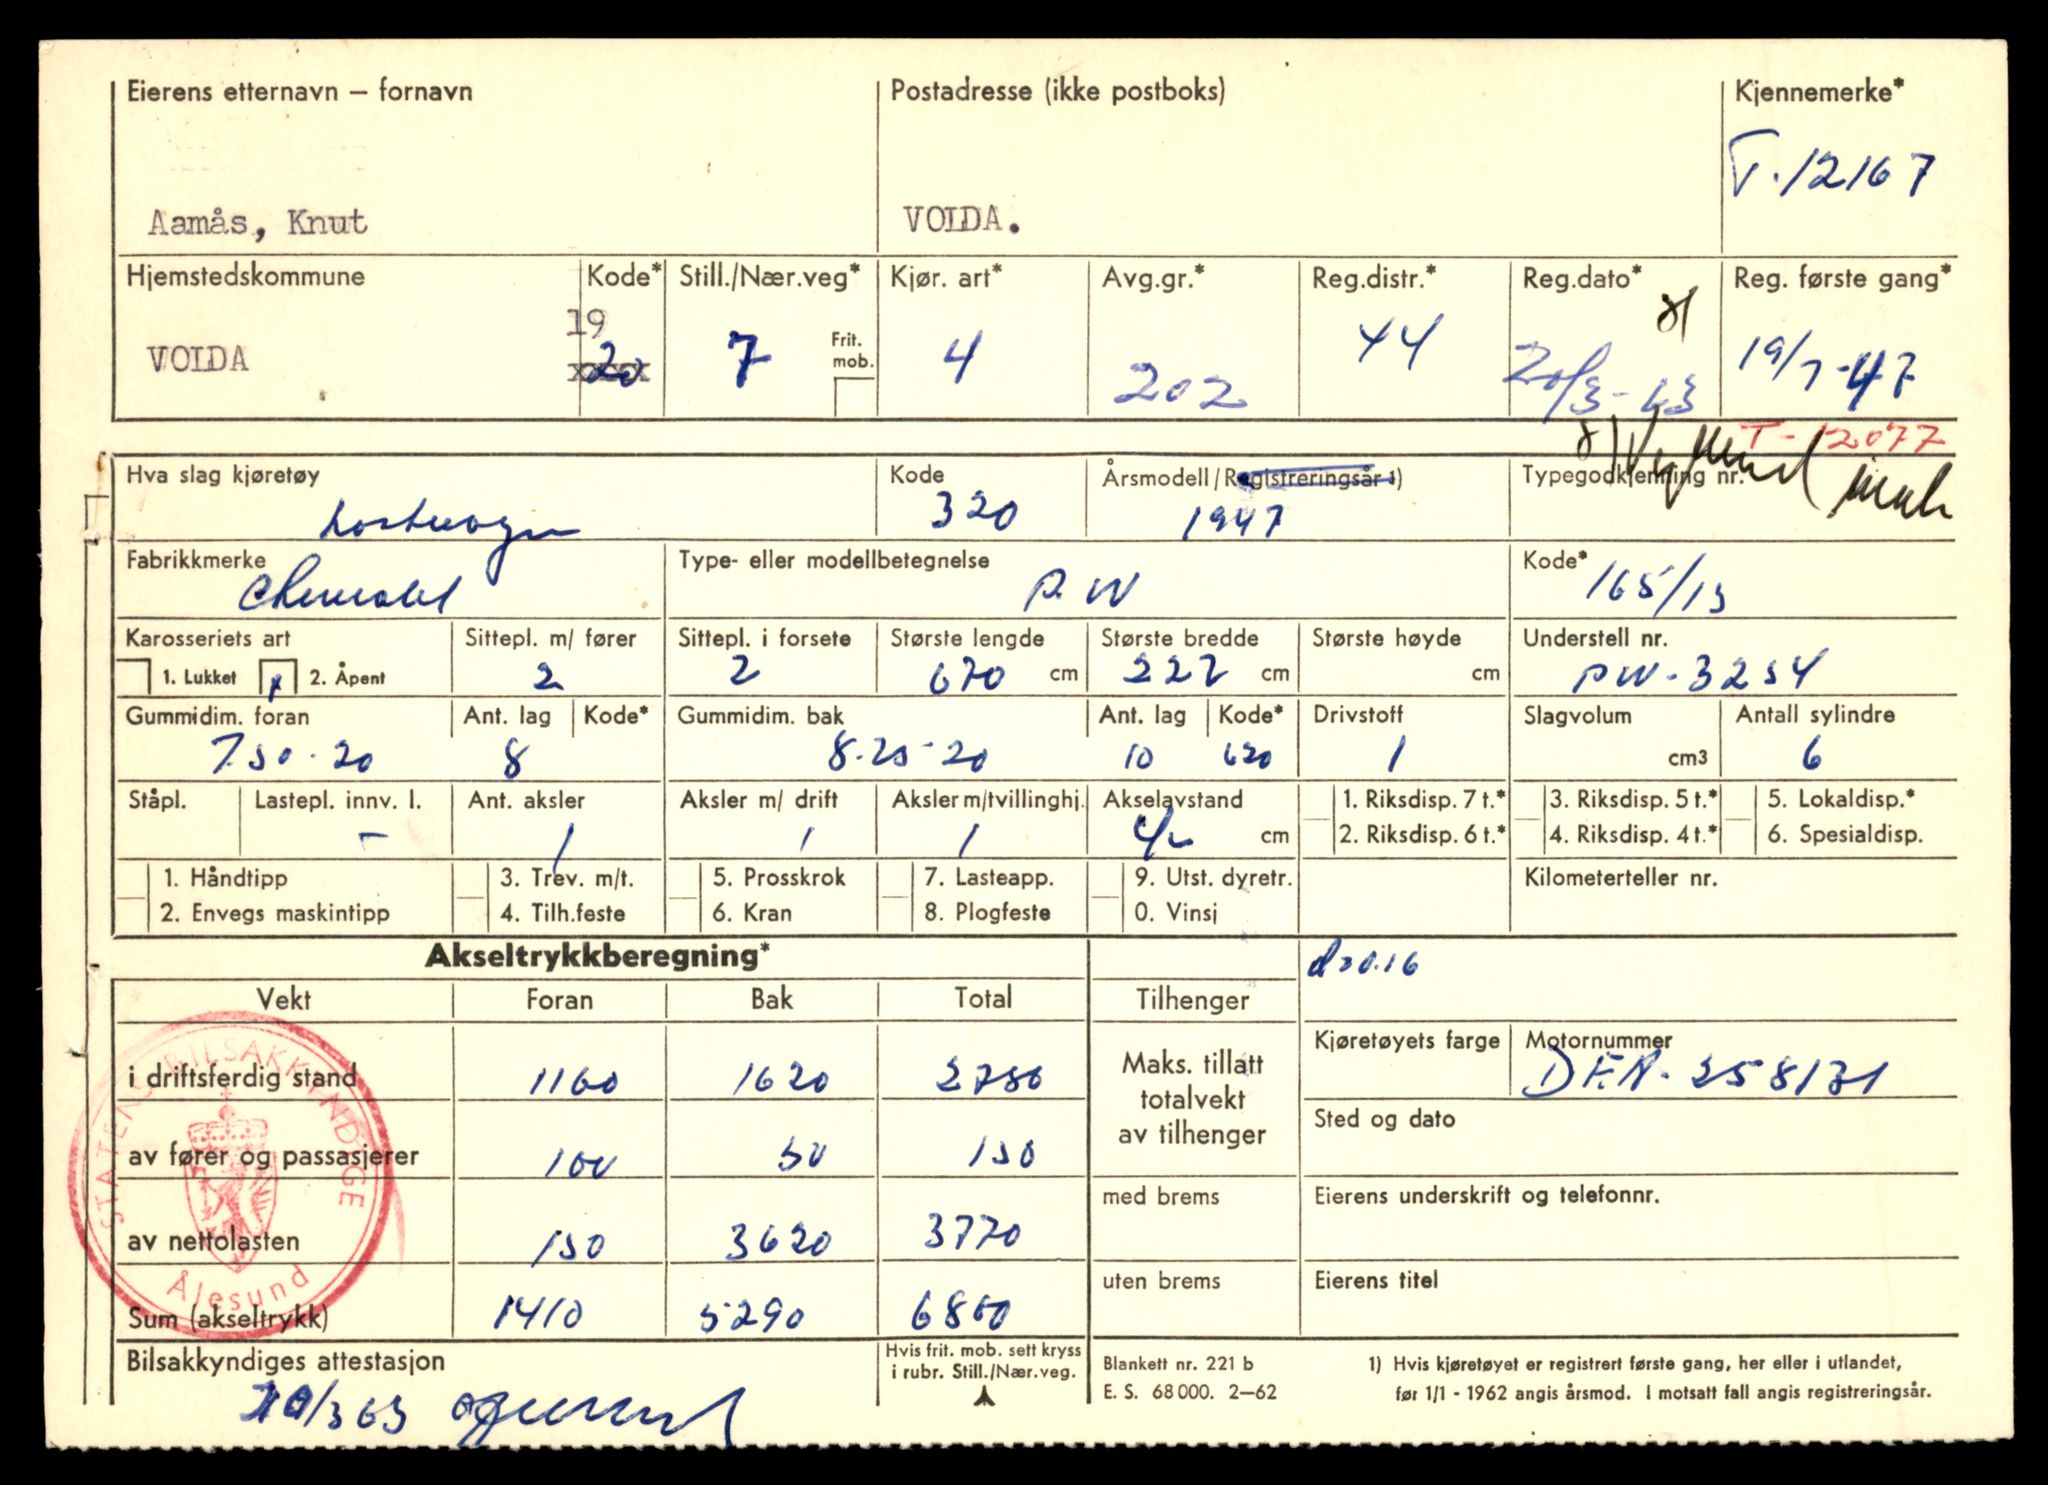 Eierens etternavn – fornavn Postadresse (ikke postboks) Kjennemerke*
T-12167
Aamås, Knut VOLDA.
Hjemstedskommune Kode* Still./Nær.veg* Kjør. art* Avg.gr.* Reg.distr.* Reg.dato* Reg. første gang*
19
VOLDA 20 7 Frit. mob. 4 202 44 20/3-63 19/7-47
T-12077
Hva slag kjøretøy Kode Årsmodell/Registreringsår 1) Typegodkjenning nr.
Lastevogn 320 1947
Fabrikkmerke Type- eller modellbetegnelse Kode*
Chevrolet P.W 165/13
Karosseriets art Sittepl. m/ fører Sittepl. i forsete Største lengde Største bredde Største høyde Understell nr.
1. Lukket x 2. Åpent 2 2 670 cm 222 cm cm PW-3254
Gummidim. foran Ant. lag Kode* Gummidim. bak Ant. lag Kode* Drivstoff Slagvolum Antall sylindre
7.50-20 8 8.25-20 10 620 1 cm3 6
Ståpl. Lastepl. innv. l. Ant. aksler Aksler m/ drift Aksler m/tvillinghj. Akselavstand 1. Riksdisp. 7 t.* 3. Riksdisp. 5 t.* 5. Lokaldisp.*
– 1 1 1 cm 2. Riksdisp. 6 t.* 4. Riksdisp. 4 t.* 6. Spesialdisp.
1. Håndtipp 3. Trev. m/t. 5. Prosskrok 7. Lasteapp. 9. Utst. dyretr. Kilometerteller nr.
2. Envegs maskintipp 4. Tilh.feste 6. Kran 8. Plogfeste 0. Vinsj
Akseltrykkberegning*
Vekt Foran Bak Total Tilhenger
Kjøretøyets farge Motornummer
i driftsferdig stand 1160 1620 2780 Maks. tillatt totalvekt av tilhenger DEA-258131
Sted og dato
av fører og passasjerer 100 50 150
med brems Eierens underskrift og telefonnr.
av nettolasten 150 3620 3770
uten brems Eierens titel
STATENS BILSAKKYNDIGE
Ålesund
Sum (akseltrykk) 1410 5290
Bilsakkyndiges attestasjon Hvis frit. mob. sett kryss i rubr. Still./Nær.veg. Blankett nr. 221 b 1) Hvis kjøretøyet er registrert første gang, her eller i utlandet,
E. S. 68 000. 2–62 før 1/1 - 1962 angis årsmod. I motsatt fall angis registreringsår.
20/3 63